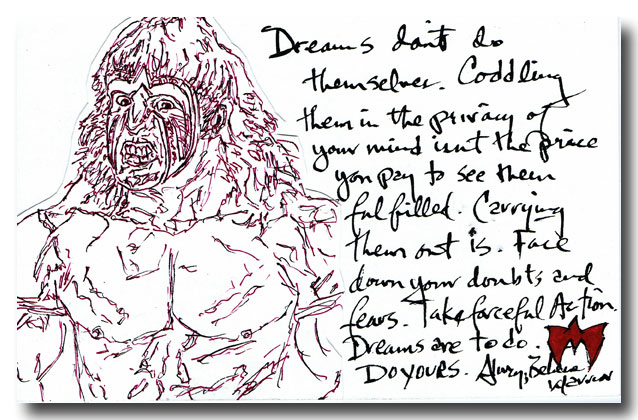 Dreams don't do
themselves. Coddling
them in the privacy of
your mind isn't the price
you pay to see them
fulfilled. Carrying
them out is. Face
down your doubts and
fears. Take forceful Action.
Dreams are to do.
DO YOURS. Always, Believe
Warrior